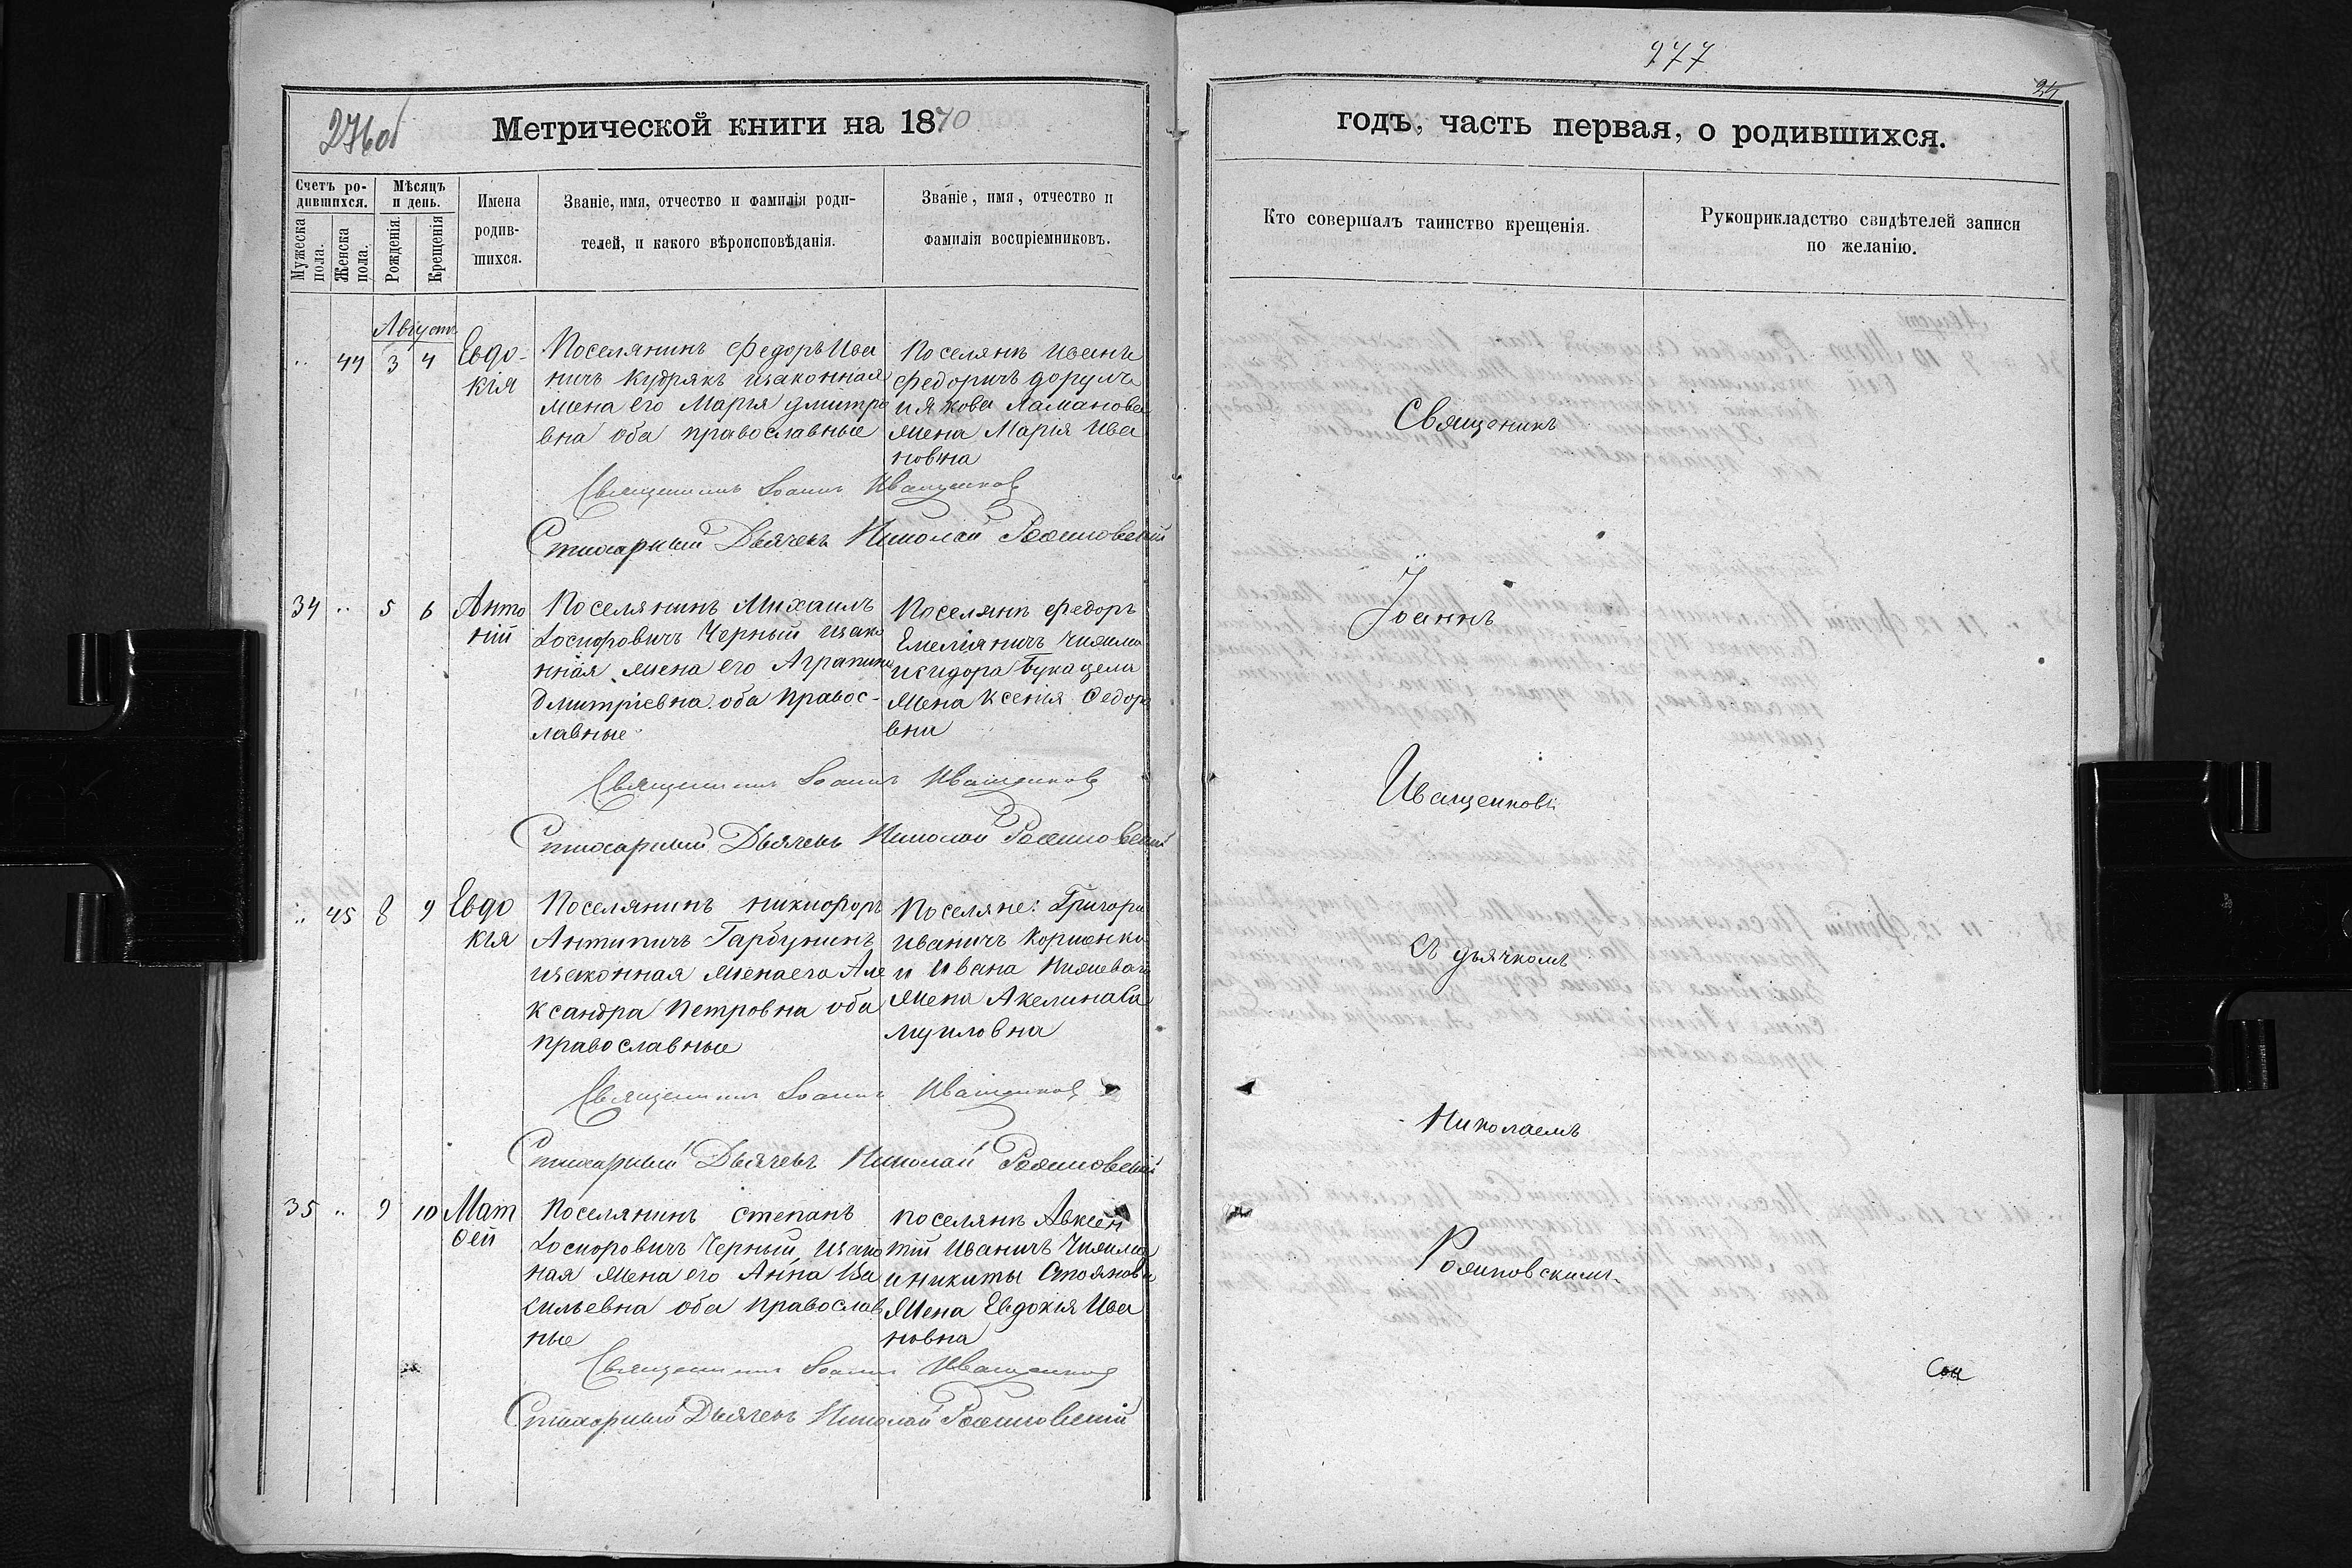 276об
Метрической книги на 1870
Счетъ ро-
дившихся.
Мужеска
пола.
Женска
пола.
Мѣсяцъ
и день.
Рожденія.
Крещенія
Имена
родив-
шихся.
Званіе, имя, отчество и фамилія роди-
телей, и какого вѣроисповѣданія.
Званіе, имя, отчество и
фамилія воспріемниковъ.
Августъ
.. 44 3 4
Евдо-
кія
Поселянинъ Федоръ Ива
ничъ Кудрякъ изаконная
жена его Марія Дмитрі
вна оба православные
Поселянъ Иванъ
Федоричъ
и Якова
жена Марья Ива
новна
Священникъ Іоаннъ Иващенковъ
Стихарный Дьячекъ Николай
34 .. 5 6
Анто
ній
Поселянинъ Михаилъ
Іосифовичъ Черный изако
нная жена его Агрипина
Дмитріевна оба правос-
лавные
Поселянъ Федоръ
Емеліяничъ
исидора
жена Ксенія Ѳедоро
вна
Священникъ Іоаннъ Иващенковъ
Стихарный Дьячекъ Николай
.. 45 8 9
Евдо
кія
Поселянинъ никифоръ
Антипичъ Гарбунинъ
изаконная жена его Але
ксандра Петровна оба
православные
Поселяне: Григори
Иваничъ
и Ивана
жена Акелина
муиловна
Священникъ Іоаннъ Иващенковъ
Стихарный Дьячекъ Николай
35 .. 9 10
Мат
ѳей
Поселянинъ степанъ
Іосифовичъ Черный, изако
ная жена его Анна Ва
сильевна оба православ
ные
поселянъ Авксен
тій Иваничъ
иникиты Стоянова
жена Евдокія Ива
новна
Священникъ Іоаннъ Иващенковъ
Стихарный Дьячекъ Николай
277
годъ, часть первая, о родившихся.
Кто совершалъ таинство крещенія.
Рукоприкладство свидѣтелей записи
по желанію.
Священикъ
Іоаннъ
Иващенковъ
съ дьячкомъ
Николаемъ